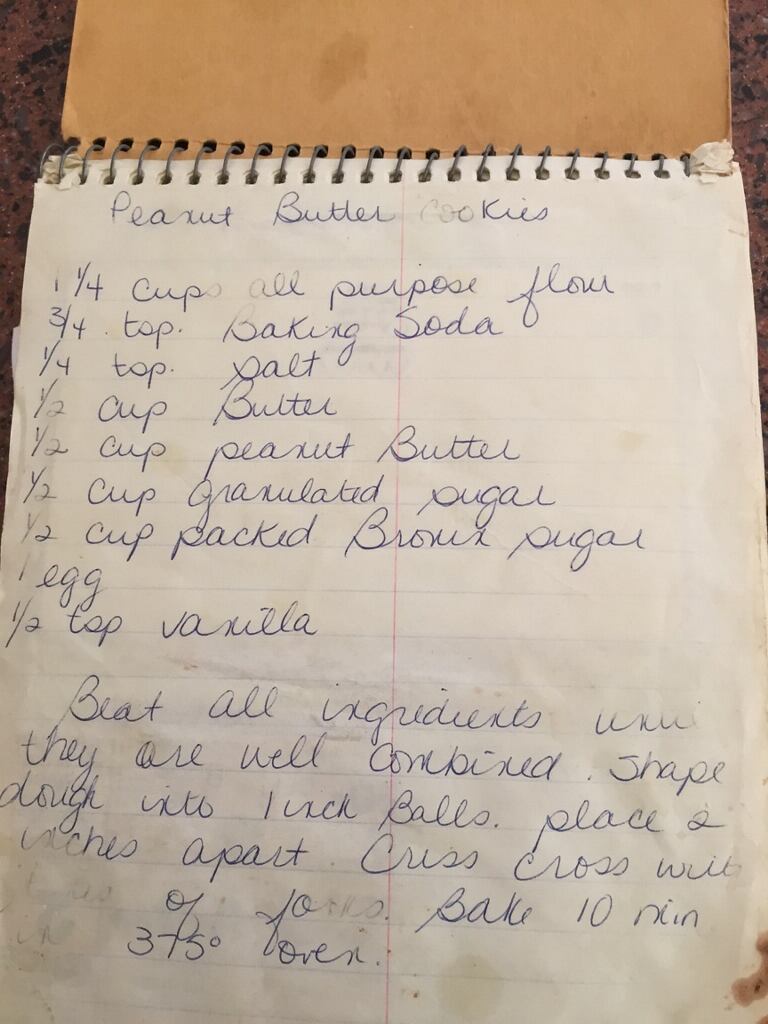 Peanut Butter Cookies
1 1/4 cups all purpose flour
3/4 tsp. Baking Soda
1/4 tsp. salt
1/2 cup Butter
1/2 cup peanut Butter
1/2 cup granulated sugar
1/2 cup packed Brown sugar
1 egg
1/2 tsp vanilla
Beat all ingredients until
they are well combined. Shape
dough into 1 inch Balls. place 2
inches apart. Criss cross with
of forks. Bake 10 min
in 375° oven.